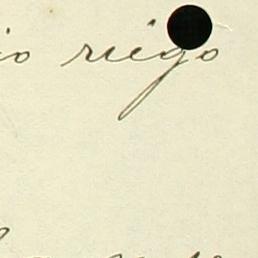 io riego